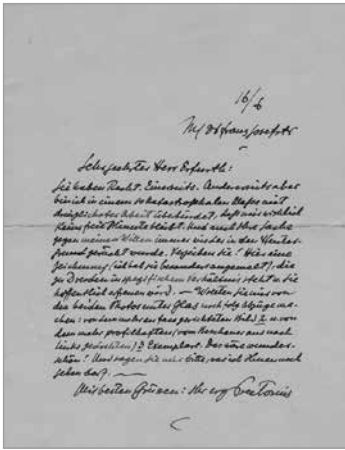 16/6
Sehr geehrter Herr Erfurth:
Sie haben Recht. Einerseits. Andererseits aber
bin ich in einem so katastrophalen Maße mit
dringlichster Arbeit überbürdet, daß mir wirklich
keine freie Minute bleibt. Und auch Ihre Sache
gegen meinen Willen immer wieder in den Hinter-
grund gerückt wurde. Verzeihen Sie! Hier eine
Zeichnung (ich hab sie besonders angemalt), die
zu Dresden in spezifischem Verhältnis steht u. Sie
hoffentlich erfreuen wird. — Wollen Sie mir von
die beiden Photos unter Glas noch folg.
chen: von dem mehr en face gerichteten Bild 2 u. von
dem mehr profilhaften (vom Beschauer aus nach
links gedrehten) 3 Exemplare. Das wäre wunder-
schön! Und sagen Sie mir bitte, was ich Ihnen noch
geben darf. —
Mit besten Grüßen: Ihr erg.